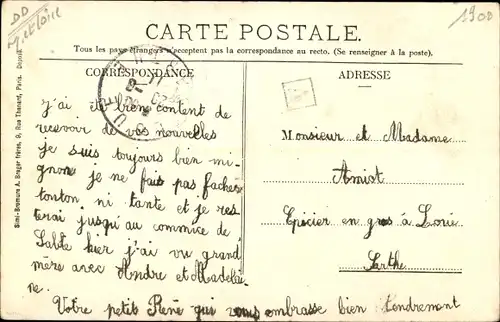 DD
1900
CARTE POSTALE.
Tous les pays étrangers n'acceptent pas la correspondance au recto. (Se renseigner à la poste).
CORRESPONDANCE
ADRESSE
j'ai été bien content de
recevoir de vos nouvelles
je suis toujours bien mi-
gnone je ne fais pas facher
tonton ni tante et je res
terai jusqu'au commice de
Sablé hier j'ai vu grand
mère avec Andre et Madelei
ne.
Votre petit René qui vous embrasse bien tendremont
Monsieur et Madame
Amiot
Epicier en gros à Loué
Sarthe
Simili-Bromure A. Breger frères, 9, Rue Thénard, Paris. Déposé.